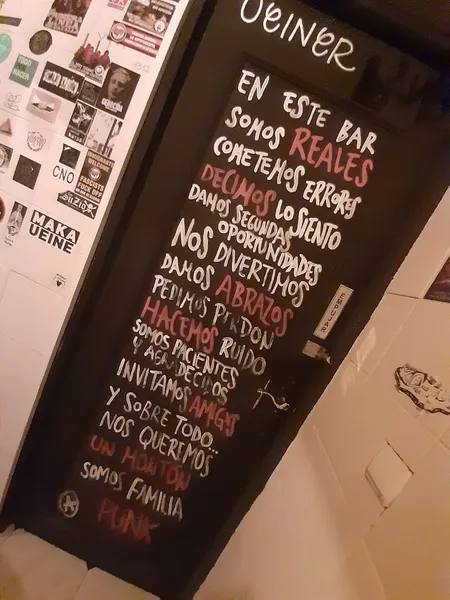 UEINER
EN ESTE BAR
SOMOS REALES
COMETEMOS ERRORES
DECIMOS LO SIENTO
DAMOS SEGUNDAS
OPORTUNIDADES
NOS DIVERTIMOS
DAMOS ABRAZOS
PEDIMOS PERDON
HACEMOS RUIDO
SOMOS PACIENTES
Y AGRADECIDOS
INVITAMOS AMIGXS
Y SOBRE TODO...
NOS QUEREMOS
UN MONTON
SOMOS FAMILIA
PUNK
EMPUJAR
TODO
HACER
IMMIGRANTS
WELCOME
FASCISTS
FUCK OFF
CNO
MAKA
UEINE